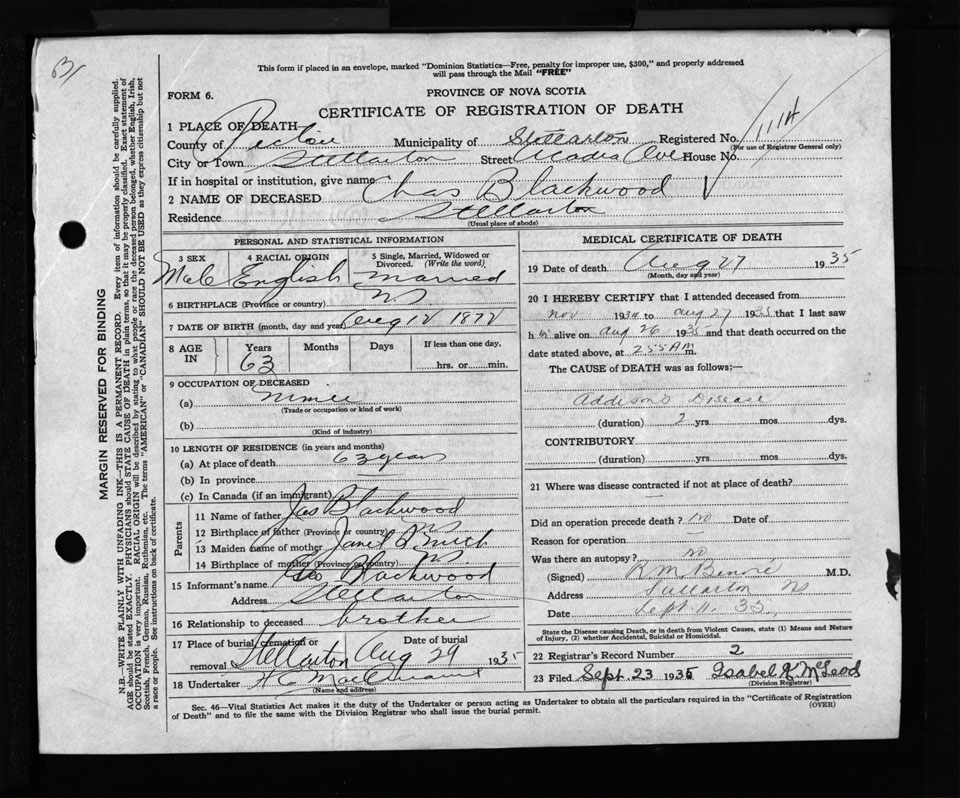 This form if placed in an envelope, marked "Dominion Statistics—Free, penalty for improper use, $300," and properly addressed
will pass through the Mail "FREE"
FORM 6.
PROVINCE OF NOVA SCOTIA
CERTIFICATE OF REGISTRATION OF DEATH
1 PLACE OF DEATH—
County of Pictou Municipality of Stellarton Registered No.
(For use of Registrar General only)
City or Town Stellarton Street Acadia Ave House No.
If in hospital or institution, give name
2 NAME OF DECEASED Chas Blackwood
Residence Stellarton
(Usual place of abode)
PERSONAL AND STATISTICAL INFORMATION
3 SEX 4 RACIAL ORIGIN 5 Single, Married, Widowed or Divorced. (Write the word)
Male English Married
6 BIRTHPLACE (Province or country) NS
7 DATE OF BIRTH (month, day and year) Aug 12 1872
8 AGE IN Years Months Days If less than one day,
63 hrs. or min.
9 OCCUPATION OF DECEASED
(a) miner
(Trade or occupation or kind of work)
(b)
(Kind of industry)
10 LENGTH OF RESIDENCE (in years and months)
(a) At place of death 63 years
(b) In province
(c) In Canada (if an immigrant)
Parents
11 Name of father Jas Blackwood
12 Birthplace of father (Province or country) NS
13 Maiden name of mother Janet Smith
14 Birthplace of mother (Province or country) NS
15 Informant's name Geo Blackwood
Address Stellarton
16 Relationship to deceased brother
17 Place of burial, cremation or removal Stellarton Date of burial Aug 29 1935
18 Undertaker
(Name and address)
MEDICAL CERTIFICATE OF DEATH
19 Date of death Aug 27 1935
(Month, day and year)
20 I HEREBY CERTIFY that I attended deceased from
Nov 1934 to Aug 27 1935 that I last saw
h im alive on Aug 26 1935 and that death occurred on the
date stated above, at 2.55 AM m.
The CAUSE of DEATH was as follows:—
Addisons Disease
(duration) 2 yrs. mos. dys.
CONTRIBUTORY
(duration) yrs. mos. dys.
21 Where was disease contracted if not at place of death?
Did an operation precede death? no Date of
Reason for operation
Was there an autopsy? no
(Signed) M.D.
Address Stellarton NS
Date Sept. 11. 35.
State the Disease causing Death, or in death from Violent Causes, state (1) Means and Nature of Injury, (2) whether Accidental, Suicidal or Homicidal.
22 Registrar's Record Number 2
23 Filed Sept 23 1935 Isabel McLeod
(Division Registrar)
Sec. 46—Vital Statistics Act makes it duty of the Undertaker or person acting as Undertaker to obtain all the particulars required in the "Certificate of Registration
of Death" and to file the same with the Division Registrar who shall issue the burial permit. (OVER)
MARGIN RESERVED FOR BINDING
N.B.—WRITE PLAINLY WITH UNFADING INK—THIS IS A PERMANENT RECORD. Every item of information should be carefully supplied.
AGE should be stated EXACTLY. PHYSICIANS should STATE CAUSE OF DEATH in plain terms, so that it may be properly classified. Exact statement of
OCCUPATION is very important. RACIAL ORIGIN will be described by stating to what people or race the deceased person belonged, whether English, Irish,
Scottish, French, German, Russian, Ruthenian, etc. The terms "AMERICAN" or "CANADIAN" SHOULD NOT BE USED as they express citizenship but not
a race or people. See instructions on back of certificate.